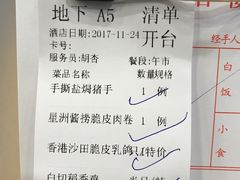 地下 A5 清单
酒店日期:2017-11-24 开台
卡号:
服务员:胡杏 餐段:午市
菜品名称 数量规格
手撕盐焗猪手 1 例
星洲酱捞脆皮肉卷 1 例
香港沙田脆皮乳鸽 1 只(特价)
白切稻香鸡
经手人
白
饭
小